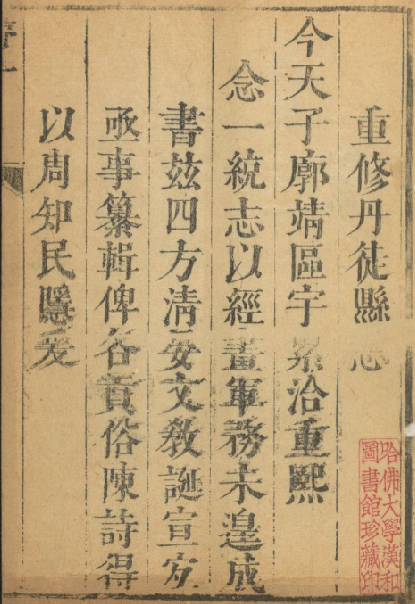 重修丹徒縣志
今天子廓靖區宇累洽重熙
念一統志以經畫軍務未遑成
書玆四方清安文敎誕宣宐
亟事纂輯俾各貢俗陳詩得
以周知民隱爰
哈佛大學漢和
圖書館珍藏印